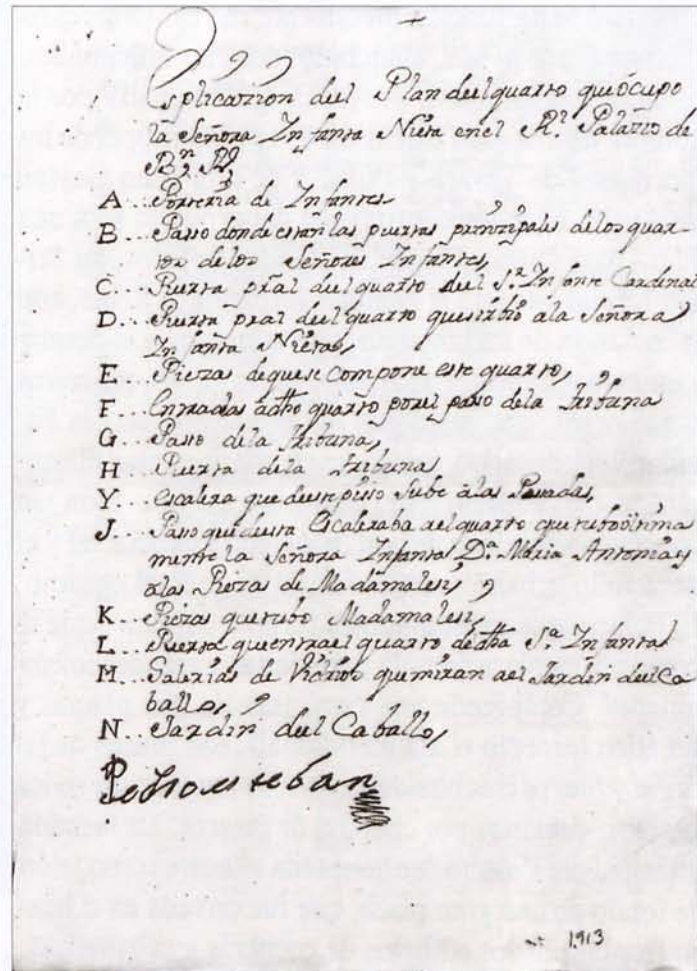 +
Esplicazion del Plan del quarto que ócupo
la Señora Infanta Nieta en el Rl. Palazio de
Bn. Ro
A... Porteria de Infantes
B... Passo donde están las puertas prinzipales de los quar-
tos de los Señores Infantes,
C... Puerta pral del quarto del Sr. Infante Cardenal
D... Puerta pral del quarto que sirbió ala Señora
Infanta Nieta,
E... Piezas de que se compone este quarto,
F... Entradas a dho quarto por el passo dela Tribuna
G... Passo dela tribuna,
H... Puerta dela tribuna
Y... escalera que deese pisso sube álas
J... Passo que desta Escalera ba ael quarto que tubo última
mente la Señora Infanta Da. Maria Antonia, y
álas Piezas de Madamalesi,
K... Piezas que tubo Madamalesi,
L... Puerta que entra el quarto de dha Sa. Infanta
M... Galerias de Vidrios que miran ael Jardin del Ca
ballo,
N... Jardin del Caballo,
Pedro esteban
1913